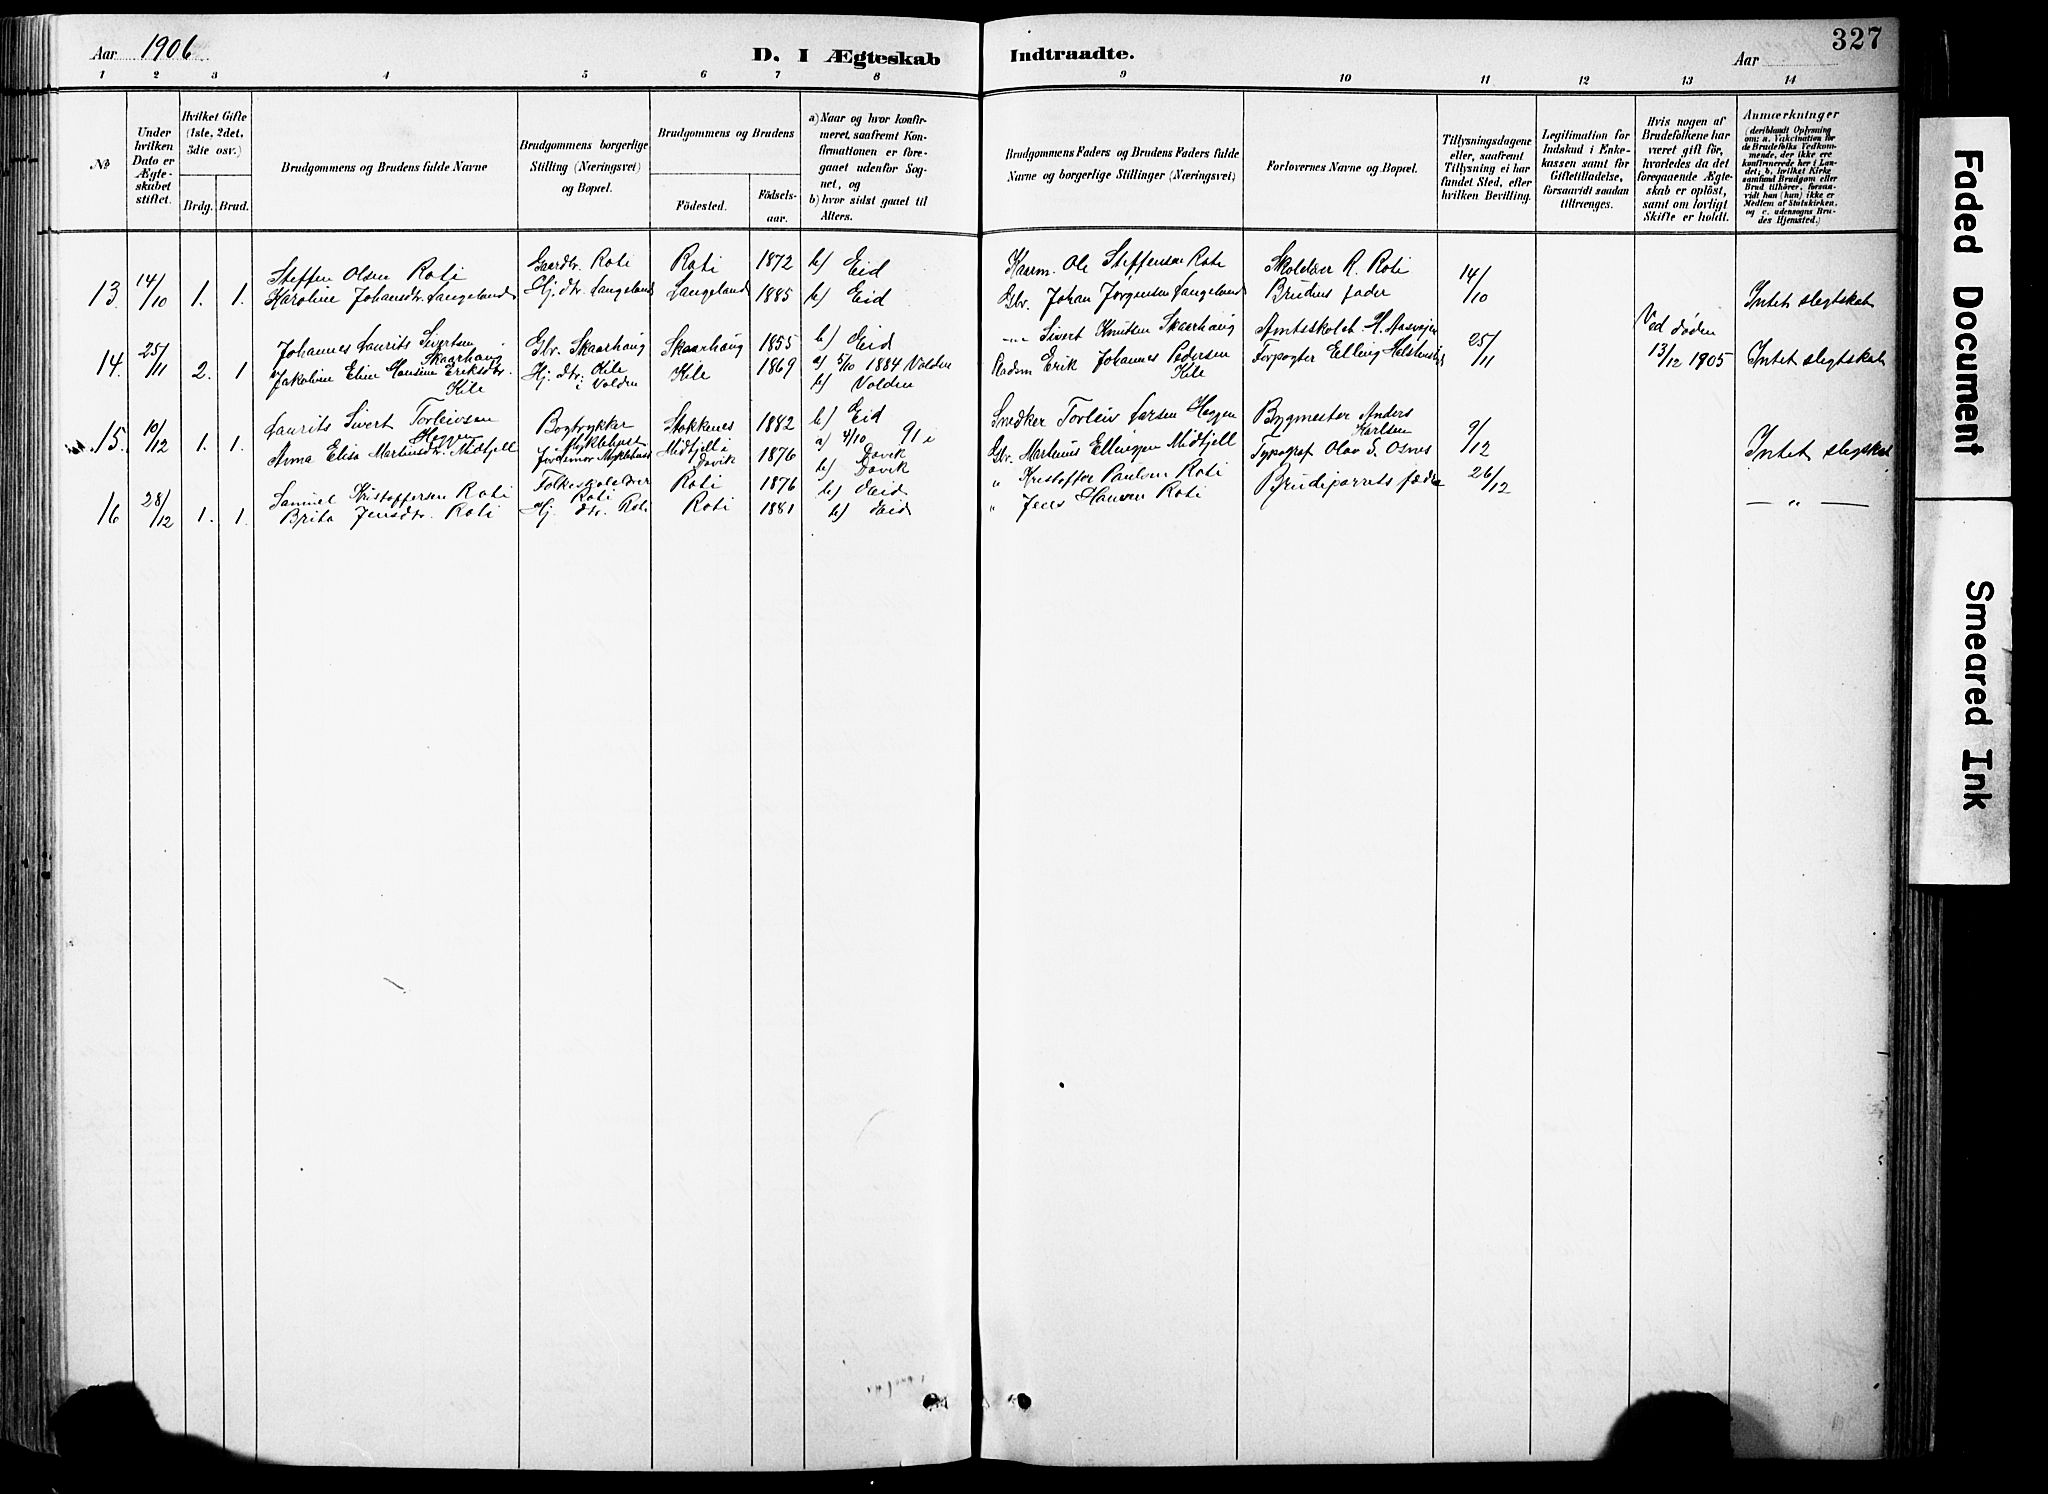 Aar 1906
D. I Ægteskab Indtraadte.
Aar
327
1 2 3 4 5 6 7 8 9 10 11 12 13 14
No
Under hvilken Dato er Ægteskabet stiftet.
Hvilket Gifte (1ste, 2det, 3die osv.)
Brdg. Brud.
Brudgommens og Brudens fulde Navne
Brudgommens borgerlige Stilling (Næringsvei) og Bopæl.
Brudgommens og Brudens
Fødested.
Fødselsaar.
a) Naar og hvor konfirmeret, saafremt Konfirmationen er foregaaet udenfor Sognet, og
b) hvor sidst gaaet til Alters.
Brudgommens Faders og Brudens Faders fulde Navne og borgerlige Stillinger (Næringsvei)
Forlovernes Navne og Bopæl.
Tillysningsdagene eller, saafremt Tillysning ei har fundet Sted, efter hvilken Bevilling.
Legitimation for Indskud i Enkekassen samt for Giftetilladelse, forsaavidt saadan tiltrænges.
Hvis nogen af Brudefolkene har været gift før, hvorledes da det foregaaende Ægteskab er opløst, samt om lovligt Skifte er holdt.
Anmærkninger
(deriblandt Oplysning om: a. Vakcination for de Brudefolks Vedkommende, der ikke ere konfirmerede her i Landet; b. hvilket Kirkesamfund Brudgom eller Brud tilhører, forsaavidt han (hun) ikke er Medlem af Statskirken, og c. udensogns Brudes Hjemsted.)
13 14/10 1. 1. Steffen Olsen Roti Gaardbr. Roti Roti 1872 b) Eid Kaarm. Ole Steffensen Roti Skolelær R. Roti 14/10
Karoline Johansdtr. Langeland Hj. dtr. Langeland Langeland 1885 b) Eid Gbr. Johan Jørgensen Langeland Brudens fader Intet slegtskab
14. 25/11 2. 1 Johannes Laurits Sivertsen Skaarhaug Gbr. Skaarhaug Skaarhaug 1855 b) Eid Sivert Knutsen Skaarhaug Amtsskolel. 25/11 Ved døden 13/12 1905 Intet slegtskab
Jakobine Eline Hansine Eriksdtr. Kile Hj. dtr. Kile i Volden Kile 1869 a) 5/10 1884 Volden b) Volden Erik Johannes Pedersen Kile Forpagter Elling
15. 10/12 1. 1. Laurits Sivert Torleivsen Heggen Bogtrykker Myklebust Stokkenes 1882 b) Eid Snedker Torleiv Larsen Heggen Bygmester Anders Karlsen 9/12
Anna Elisa Martinsdtr. Midtjell Jordmor Myklebust Midtjell i Davik 1876 a) 4/10 91 i Davik b) Davik Gbr. Martinus Ellingsen Midtjell Typograf Olav S. Osnes Intet slegskab
16 28/12 1. 1. Samuel Kristoffersen Roti Folkeskolelærer Roti Roti 1876 b) Eid " Kristoffer Paulsen Roti Brudeparrets fædre 26/12
Brita Jensdtr. Roti Hj. dtr. Roti Roti 1881 b) Eid " Jens Hansen Roti — " —
Faded Document
Smeared Ink